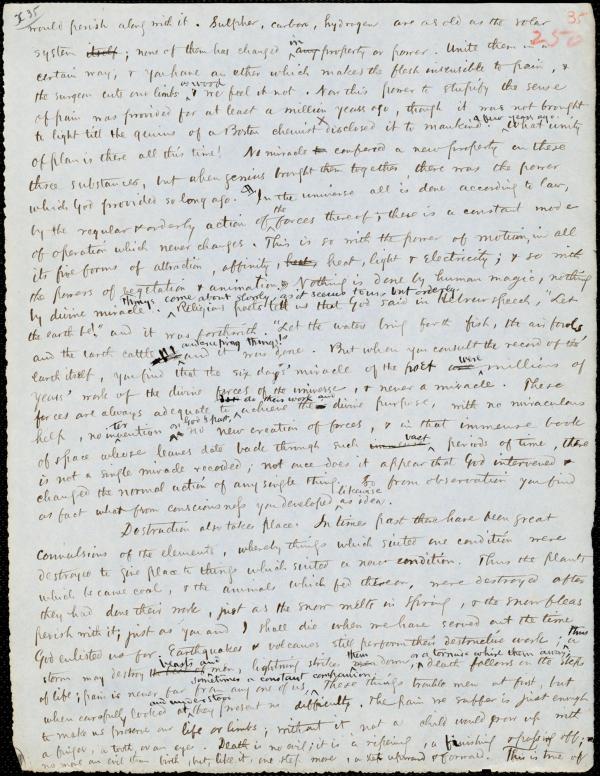 x35
35
250
would perish along with it. Sulpher, carbon, hydrogen are as old as the solar
system itself; none of them has changed in any property or power. Unite them in a
certain way, & you have an ether which makes the flesh insensible to pain, &
the surgeon cuts our limbs as wood & we feel it not. Nor this power to stupify the sense
of pain was provided for at least a million years ago, though it was not brought
to light till the genius of a Boston chemist x disclosed it to mankind a few years ago. What unity
of plan is there all this time! No miracle to confered a new property on these
three substances, but when genius brought them together there was the power
which God provided so long ago. In the universe all is done according to law,
by the regular & orderly action of the forces thereof & there is a constant mode
of operation which never changes. This is so with the power of motion, in all
its five forms of attraction, affinity, heat, heat, light & electricity; & so with
the powers of vegetation & animation. Nothing is done by human magic, nothing
by divine miracle. Things come about slowly, as it seems to us, but orderly.
Religious poets tell us that God said in Hebrew speech, "Let
the earth be!" and it was forthwith. "Let the waters bring forth fish, the air fowls
and the earth cattle and creeping things!" and it was done. But when you consult the record of the
earth itself, you find that the six days' miracle of the poet were millions of
years' work of the divine forces of the universe, & never a miracle. These
forces are always adequate to do their work and achieve the divine purpose, with no miraculous
help, no intervention or God's part, no new creation of forces, & in that immense book
of space whose leaves date back through such vast periods of time, there
is not a single miracle recorded; not once does it appear that God intervened &
changed the normal action of any single thing. So from observation you find
as fact what from consciousness you developed likewise as idea.
Destruction also takes place. In times past there have been great
convulsions of the elements, whereby things which suited one condition were
destroyed to give place to things which suited a new condition. Thus the plants
which became coal, & the animals which fed thereon, were destroyed after
they had done their work, just as the snow melts in Spring, & the snow fleas
perish with it; just as you and I shall die when we have served out the time
God enlisted us for. Earthquakes & volcanoes still perform their destructive work; thus
storm may destroy beasts and men, lightning strike them down, or a tornado whirl them away, & death follows on the steps
of life; pain is never far from any one of us, sometimes a constant companion. These things trouble men at first, but
when carefully looked at and understood they present no difficulty. The pain we suffer is just enough
to make us preserve our life or limbs; without it, not a child would grow up with
a finger, a tooth, or an eye. Death is no evil; it is a ripening, a finishing off;
no more an evil than birth, but, like it, one step more, a upward & forward. This is true of